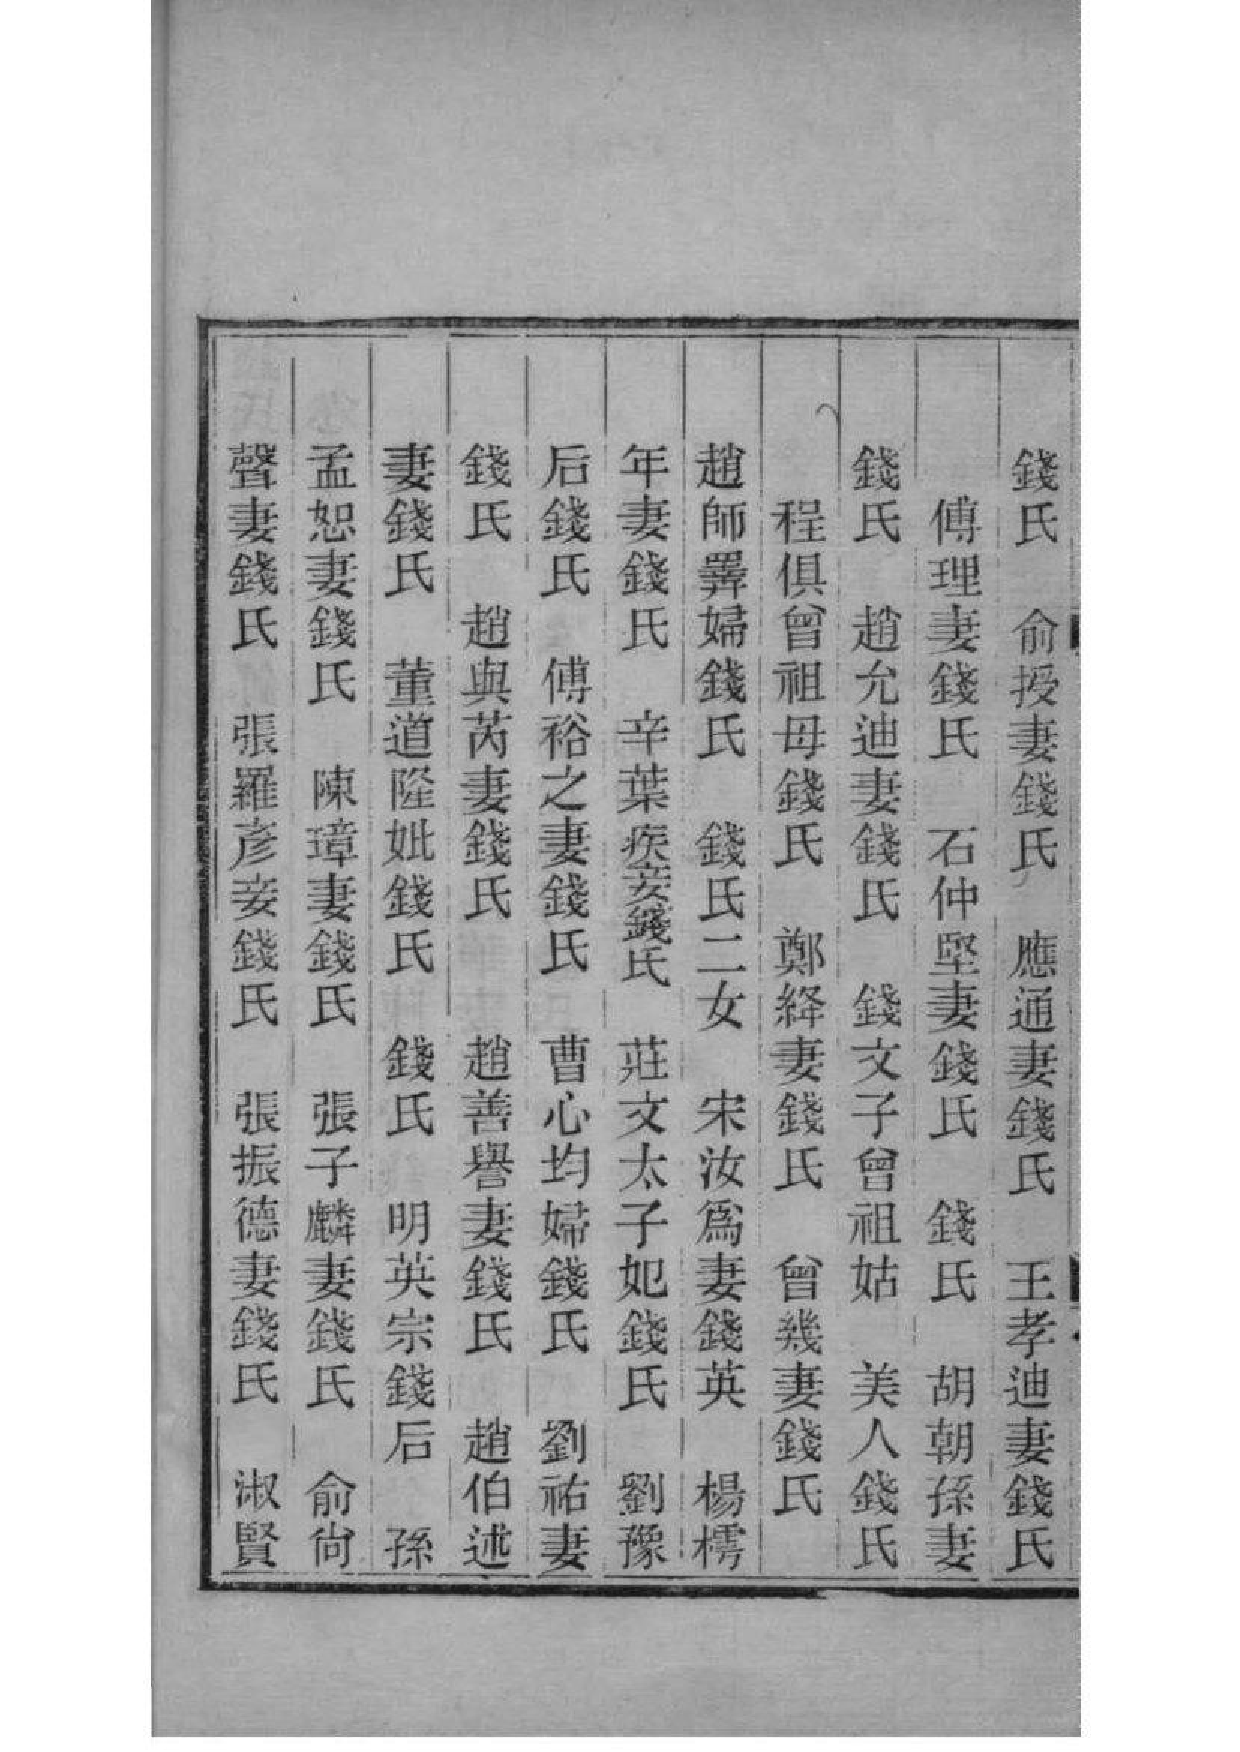 錢氏　俞授妻錢氏　應通妻錢氏　王孝迪妻錢氏
傅理妻錢氏　石仲堅妻錢氏　錢氏　胡朝孫妻
錢氏　趙允迪妻錢氏　錢文子曾祖姑　美人錢氏
程俱曾祖母錢氏　鄭絳妻錢氏　曾幾妻錢氏
趙師睪婦錢氏　錢氏二女　宋汝爲妻錢英　楊樗
年妻錢氏　辛棄疾妾錢氏　莊文太子妃錢氏　劉豫
后錢氏　傅裕之妻錢氏　曹心均婦錢氏　劉祐妻
錢氏　趙與芮妻錢氏　趙善譽妻錢氏　趙伯述
妻錢氏　董道隆妣錢氏　錢氏　明英宗錢后　孫
孟恕妻錢氏　陳璋妻錢氏　張子麟妻錢氏　俞尙
聲妻錢氏　張羅彥妾錢氏　張振德妻錢氏　淑賢